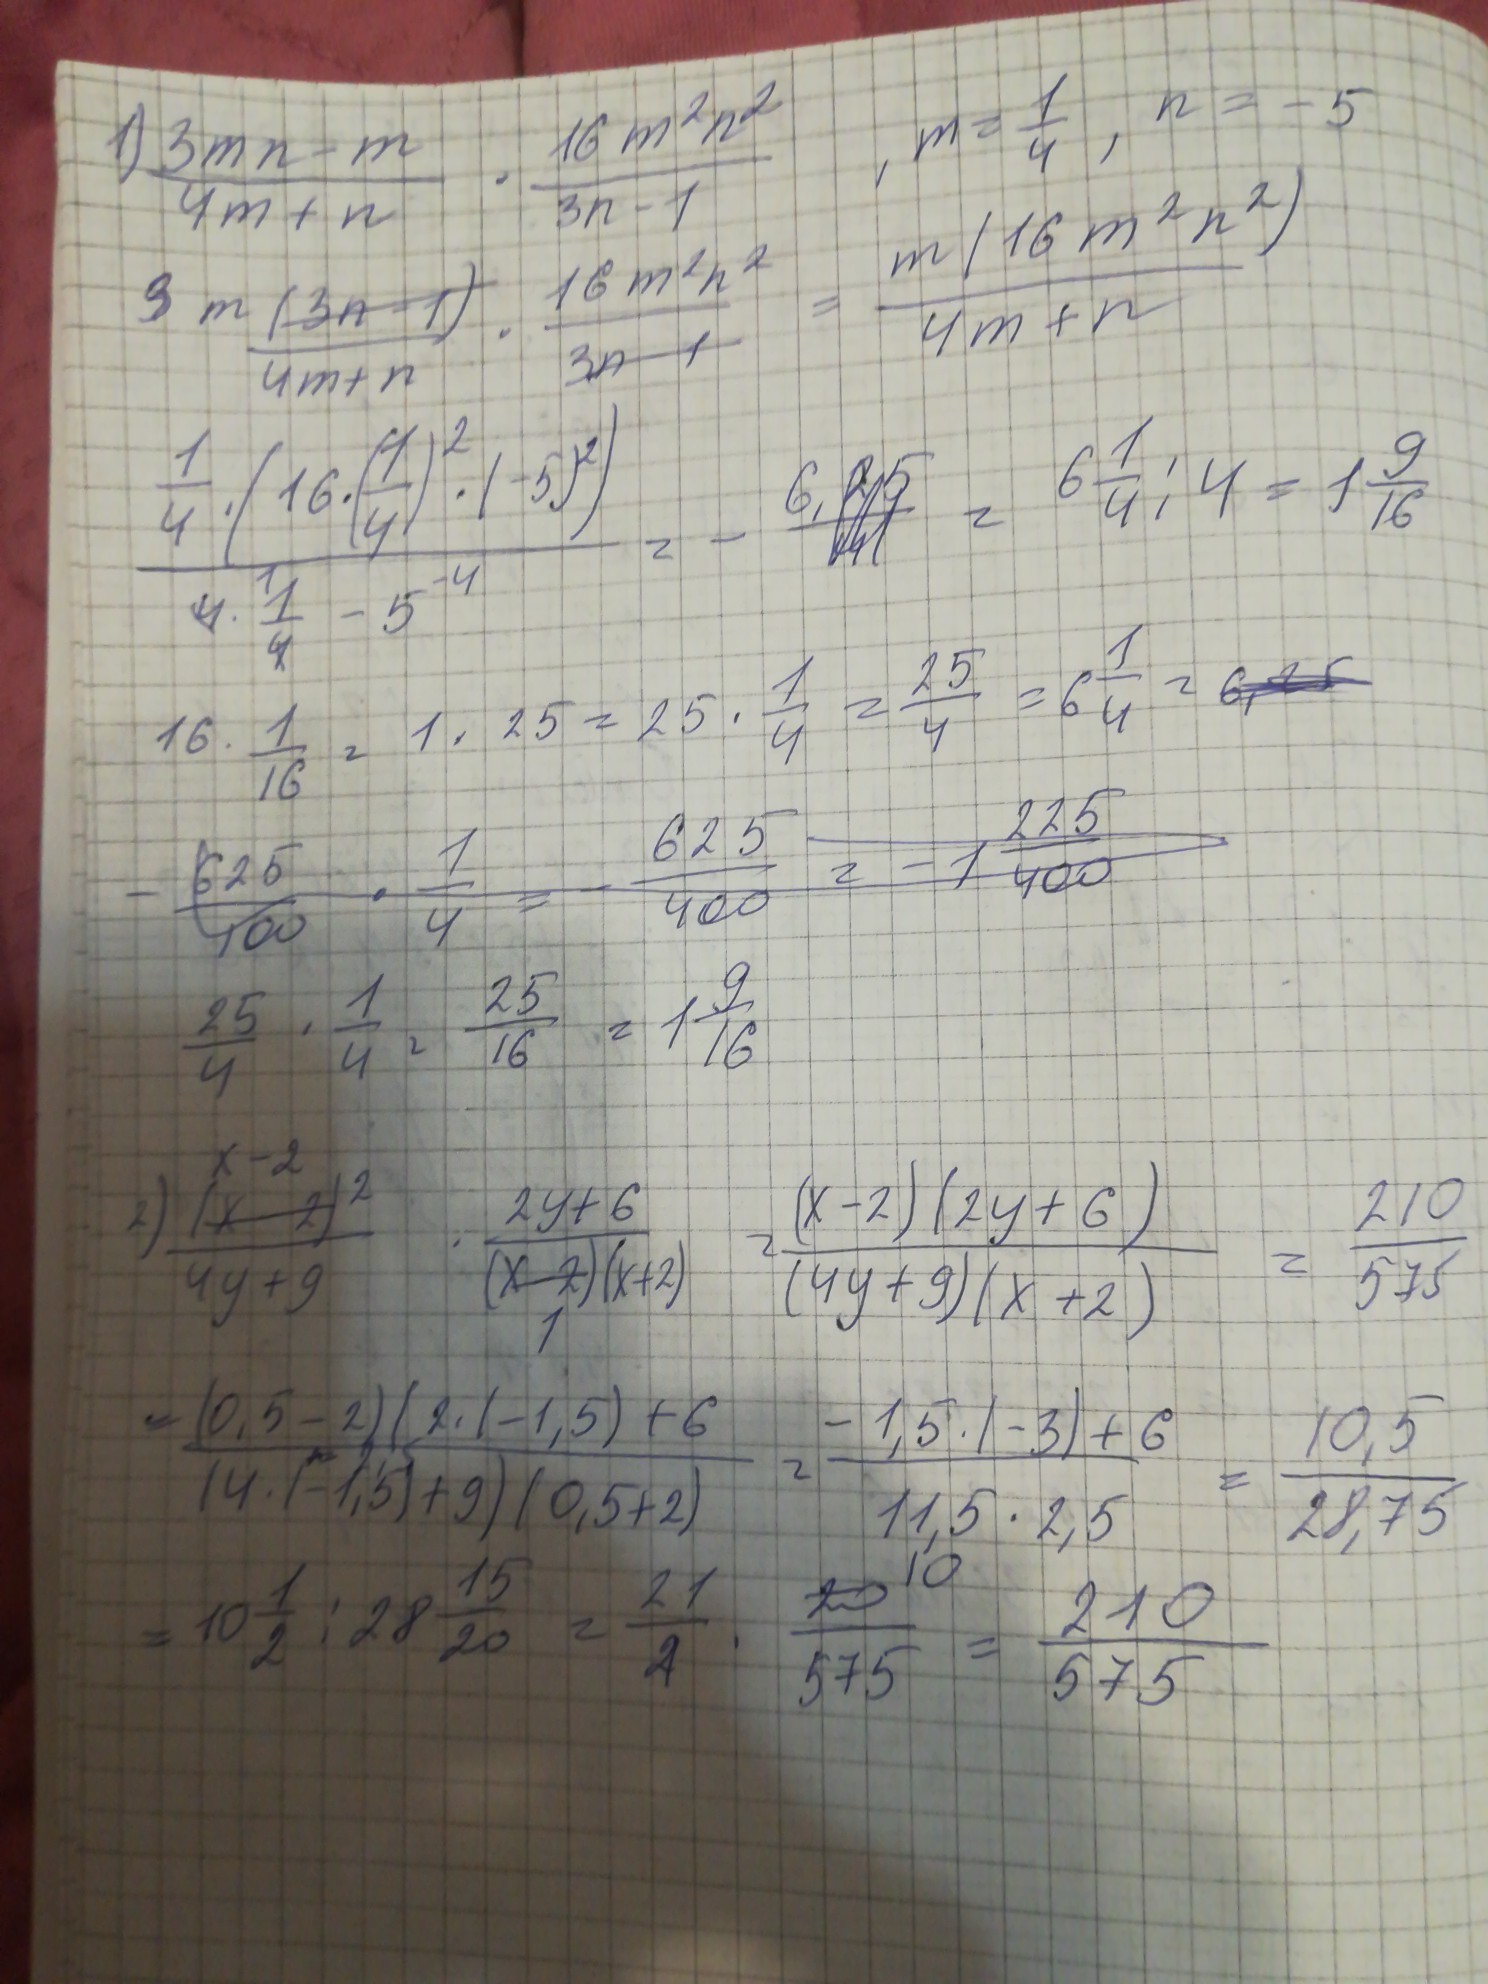 1) (3mn - m)/(4m + n) · (16m²n²)/(3n - 1) , m = 1/4 , n = -5
m(3n - 1)/(4m + n) · (16m²n²)/(3n - 1) = m(16m²n²)/(4m + n)
(1/4 · (16 · (1/4)² · (-5)²))/(4 · 1/4 - 5) -4 = - 6,25 = 6 1/4 : 4 = 1 9/16
16 · 1/16 = 1 · 25 = 25 · 1/4 = 25/4 = 6 1/4 = 6,25
- 625/100 · 1/4 = - 625/400 = -1 225/400
25/4 · 1/4 = 25/16 = 1 9/16
x - 2
2) (x - 2)²/(4y + 9) · (2y + 6)/((x - 2)(x + 2)) = (x - 2)(2y + 6)/((4y + 9)(x + 2)) = 210/575
1
= (0,5 - 2)(2 · (-1,5) + 6/(4 · (-1,5) + 9)(0,5 + 2) = -1,5 · (-3) + 6/11,5 · 2,5 = 10,5/28,75
= 10 1/2 : 28 15/20 = 21/2 · 20/575 10 = 210/575